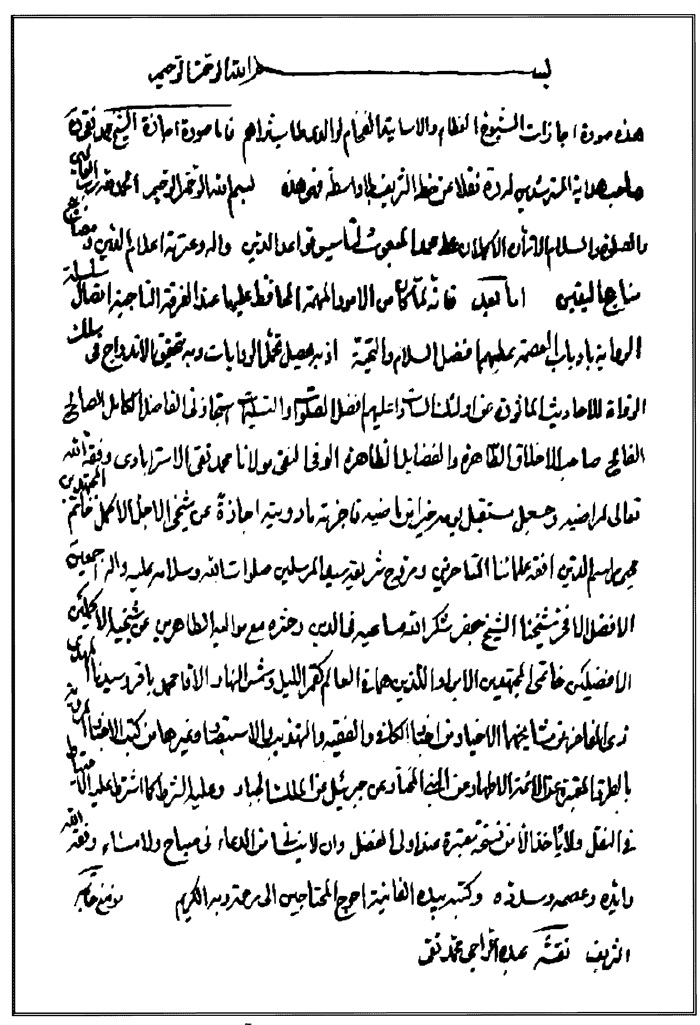 بسم الله الرحمن الرحیم
هذه صورة اجازات الشیوخ العظام والاساتید الفخام لوالدی طاب ثراهم فاما صورة اجازة الشیخ محمد تقی
صاحب هدایة المسترشدین له نقلا عن خطه الشریف بلا واسطة فهی هذه بسم الله الرحمن الرحیم الحمد لله رب العالمین
والصلوة والسلام الاتمان الاکملان علی محمد المبعوث لتاسیس قواعد الدین واله وعترته اعلام الدین و
مناهج الیقین اما بعد فانه لما کان من الامور المهمة المحافظ علیها عند الفرقة الناجیة اتصال سلسلة
الروایة بارباب العصمة علیهم افضل السلام والتحیة اذ به یحصل تحمل الروایات وبه تحقیق الاندراج فی سلک
الرواة للاحادیث الماثورة عن اولئک السادات علیهم افضل الصلوات والتسلیمات استجازنی الفاضل الکامل الصالح
الفالح صاحب الاخلاق الظاهرة والفضایل الطاهرة الوفی التقی مولانا محمد تقی الاسترابادی وفقه الله
تعالی لمراضیه وجعل مستقبل یومه خیرا من ماضیه فاجزته ما رویته اجازة عن شیخی الاجل الاکمل خاتم المجتهدین
محیی مراسم الدین افقه علمائنا المتاخرین ومروج شریعة سید المرسلین صلوات الله وسلامه علیه واله اجمعین
الافضل الافخر شیخنا الشیخ جعفر شکر الله مساعیه فی الدین وحشره مع موالیه الطاهرین عن شیخیه الاکملین
الافضلین خاتمی المجتهدین اللذین هما فی العالم کقمر اللیل وشمس النهار الاقا محمد باقر وسیدنا المهدی
عن مشایخهما الاخیار من اخبار الکافی والفقیه والتهذیب والاستبصار وغیرها من کتب الاخبار
بالطرق المعتبرة عن الائمة الاطهار عن النبی المختار عن جبرئیل عن الملک الجبار وعلیه الشرط کما اشترط علی
فی النقل ولا یاخذ الا من نسخة معتبرة عند اولی الفضل وان لا ینسانی من الدعاء فی صباح ولا مساء وفقه الله
وایده وعصمه وسدده وکتبه بیده الفانیة احوج المحتاجین الی رحمة ربه الکریم موضع خاتمه
الشریف نقشه عبده الراجی محمد تقی